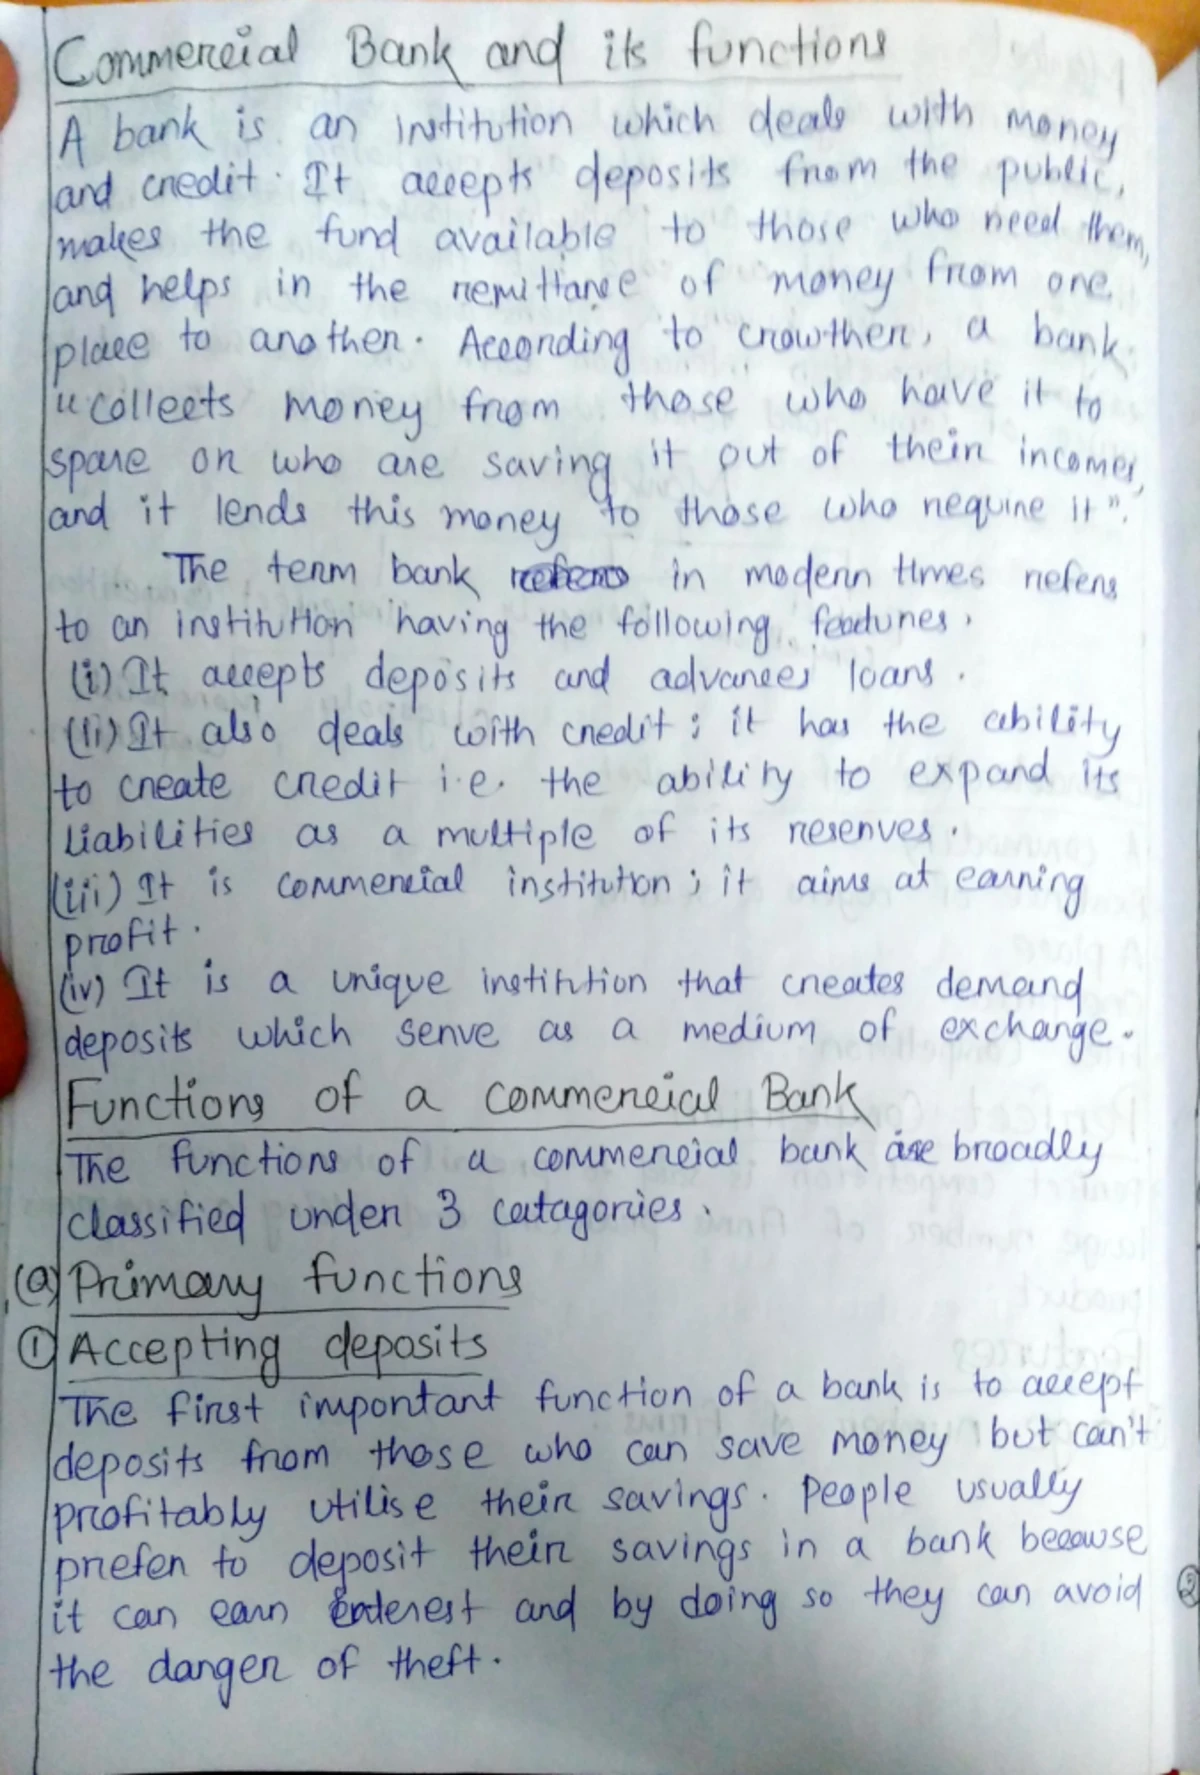 Commercial Bank and its functions
A bank is an institution which deals with money
and credit. It accepts deposits from the public,
makes the fund available to those who need them,
and helps in the remittance of money from one
place to another. According to crowther, a bank
"collects money from those who have it to
spare or who are saving it out of their incomes,
and it lends this money to those who require it".
The term bank refers in modern times refers
to an institution having the following features.
(i) It accepts deposits and advances loans.
(ii) It also deals with credit; it has the ability
to create credit i.e. the ability to expand its
liabilities as a multiple of its reserves.
(iii) It is commercial institution; it aims at earning
profit.
(iv) It is a unique institution that creates demand
deposits which serve as a medium of exchange.
Functions of a commercial Bank
The functions of a commercial bank are broadly
classified under 3 catagories.
(a) Primary functions
① Accepting deposits
The first important function of a bank is to accept
deposits from those who can save money but can't
profitably utilise their savings. People usually
prefer to deposit their savings in a bank because
it can earn interest and by doing so they can avoid
the danger of theft.